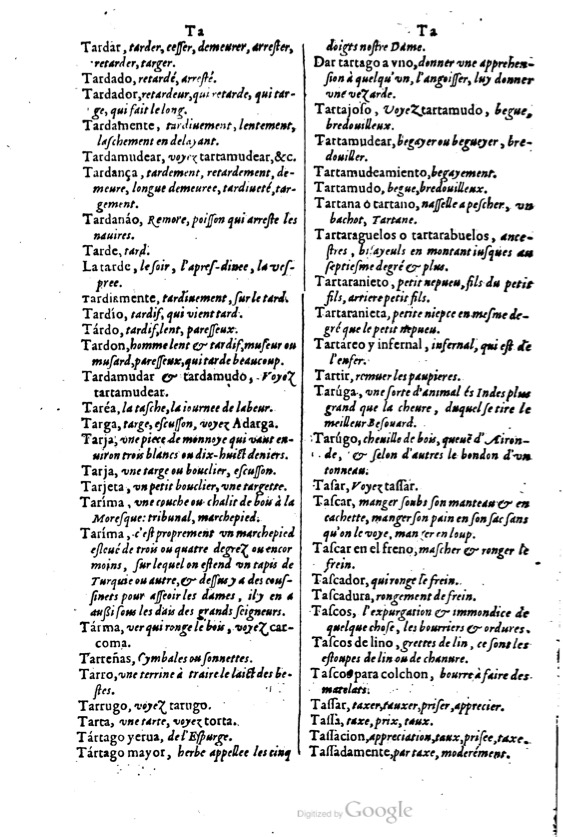 Ta
Tardar, tarder, ceſſer, demeurer, arreſter,
retarder, targer.
Tardado, retardé, arreſté.
Tardador, retardeur, qui retarde, qui tar-
ge, qui fait le long.
Tardamente, tardiuement, lentement,
laſchement en delayant.
Tardamudear, voyez tartamudear, &c.
Tardança, tardement, retardement, de-
meure, longue demeuree, tardiueté, tar-
gement.
Tardanáo, Remore, poiſſon qui arreſte les
nauires.
Tarde, tard.
La tarde, le ſoir, l'apreſ-dinee, la veſ-
pree.
Tardiamente, tardiuement, ſur le tard.
Tardío, tardif, qui vient tard.
Tárdo, tardif, lent, pareſſeux.
Tardon, homme lent & tardif, muſeur ou
muſard, pareſſeux, qui tarde beaucoup.
Tardamudar & tardamudo, Voyez
tartamudear.
Taréa, la taſche, la iournee de labeur.
Targa, targe, eſcuſſon, voyez Adarga.
Tarja, vne piece de monnoye qui vaut en-
uiron trois blancs ou dix-huict deniers.
Tarja, vne targe ou bouclier, eſcuſſon.
Tarjeta, vn petit bouclier, vne targette.
Taríma, vne couche ou chalit de bois à la
Moreſque: tribunal, marchepied.
Taríma, c'eſt proprement vn marchepied
eſleué de trois ou quatre degrez ou encor
moins, ſur lequel on eſtend vn tapis de
Turquie ou autre, & deſſus y a des couſ-
ſinets pour aſſeoir les dames, il y en a
außi ſous les dais des grands ſeigneurs.
Tárma, ver qui ronge le bois, voyez car-
coma.
Tarreñas, Cymbales ou ſonnettes.
Tarro, vne terrine à traire le laict des be-
ſtes.
Tarrugo, voyez tarugo.
Tarta, vne tarte, voyez torta.
Tártago yerua, de l'Eſpurge.
Tártago mayor, herbe appellee les cinq
Ta
doigts noſtre Dame.
Dar tartago a vno, donner vne apprehen-
ſion à quelqu'vn, l'angoiſſer, luy donner
vne vezarde.
Tartajoſo, Voyez tartamudo, begue,
bredouilleux.
Tartamudear, begayer ou begueyer, bre-
douiller.
Tartamudeamiento, begayement.
Tartamudo, begue, bredouilleux.
Tartana ò tartano, naſſelle a peſcher, vn
bachot, Tartane.
Tartaraguelos o tartarabuelos, ance-
ſtres, biſayeuls en montant iuſques au
ſeptieſme degré & plus.
Tartaranieto, petit nepueu, fils du petit
fils, arriere petit fils.
Tartaranieta, petite niepce en meſme de-
gré que le petit nepueu.
Tartareo y infernal, infernal, qui eſt de
l'enfer.
Tartir, remuer les paupieres.
Tarúga, vne ſorte d'animal és Indes plus
grand que la cheure, duquel ſe tire le
meilleur Beſouard.
Tarúgo, cheuille de bois, queuë d'Airon-
de, & ſelon d'autres le bondon d'vn
tonneau.
Taſar, Voyez taſſar.
Taſcar, manger ſoubs ſon manteau & en
cachette, manger ſon pain en ſon ſac ſans
qu'on le voye, manger en loup.
Taſcar en el freno, maſcher & ronger le
frein.
Taſcador, qui ronge le frein.
Taſcadura, rongement de frein.
Taſcos, l'expurgation & immondice de
quelque choſe, les bourriers & ordures.
Taſcos de lino, grettes de lin, ce ſont les
eſtoupes de lin ou de chanure.
Taſcos para colchon, bourre à faire des
matelats.
Taſſar, taxer, tauxer, priſer, apprecier.
Taſſa, taxe, prix, taux.
Taſſacion, appreciation, taux, priſee, taxe.
Taſſadamente, par taxe, moderément.
Digitized by Google